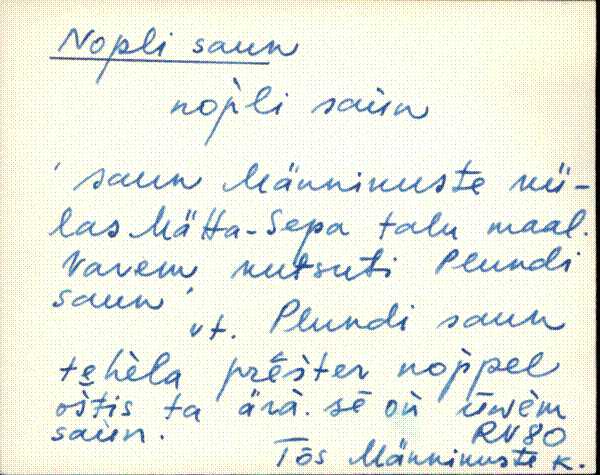 Nopli saun
nop̀li saùn
'saun Männikuste kü-
las Mätta-Sepa talu maal.
Varem kutsuti Plundi
saun'
vt. Plundi saun
tehèla prester nop̀pel
ostis ta ärà. sē oǹ üwèm
saùn. RN80
Tõs Männikuste k.